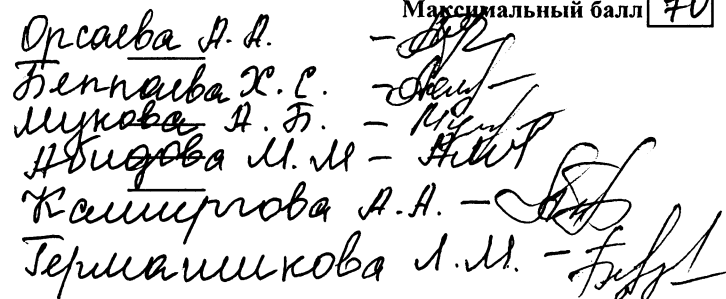 Максимальный балл 70
Орсаева А. А. –
Беппаева Х. С. –
Мукова А. Б. –
Абидова М. М –
Каширгова А. А. –
Гермашикова Л. М. –